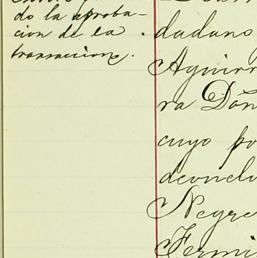 do la aproba-
cion de la
transaccion.
dadano
Aguirr
ra Don
cuyo po
Negre
Fermi